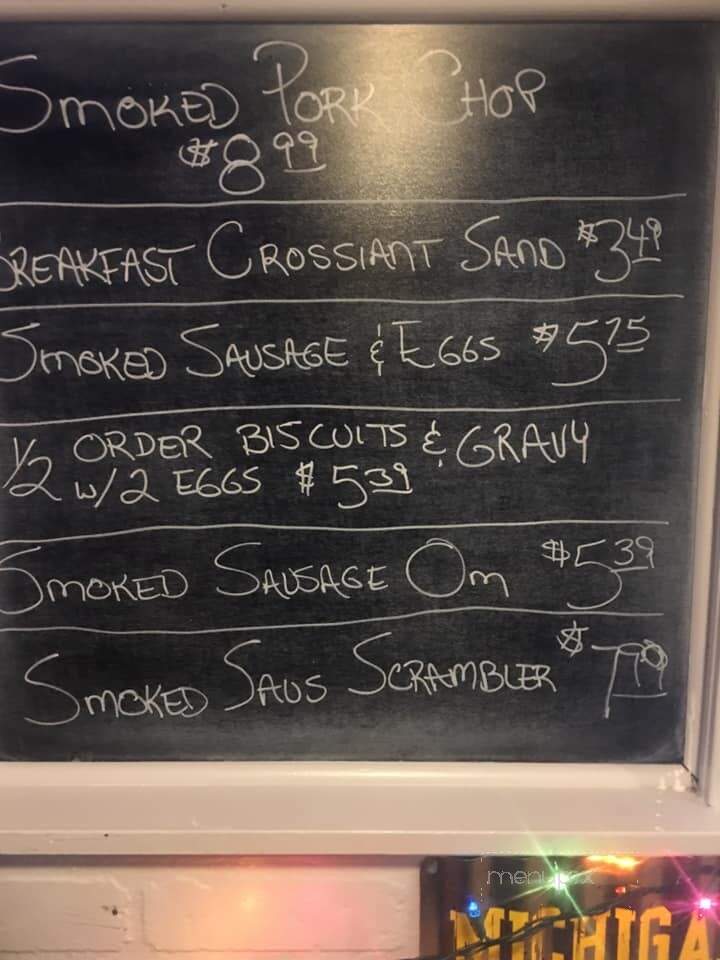 Smoked Pork Chop
$8.99
Breakfast Crossiant Sand $3.49
Smoked Sausage & Eggs $5.75
1/2 order Biscuits & Gravy
w/2 Eggs $5.39
Smoked Sausage Om $5.39
Smoked Saus Scrambler $
menupix
MICHIGA